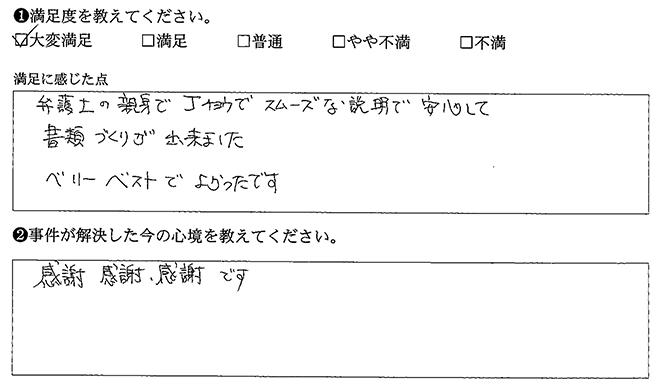 ❶満足度を教えてください。
☑大変満足 □満足 □普通 □やや不満 □不満
満足に感じた点
弁護士の親身で テイネイでスムーズな説明で 安心して
書類づくりが出来ました
ベリーベストでよかったです
❷事件が解決した今の心境を教えてください。
感謝 感謝、感謝 です